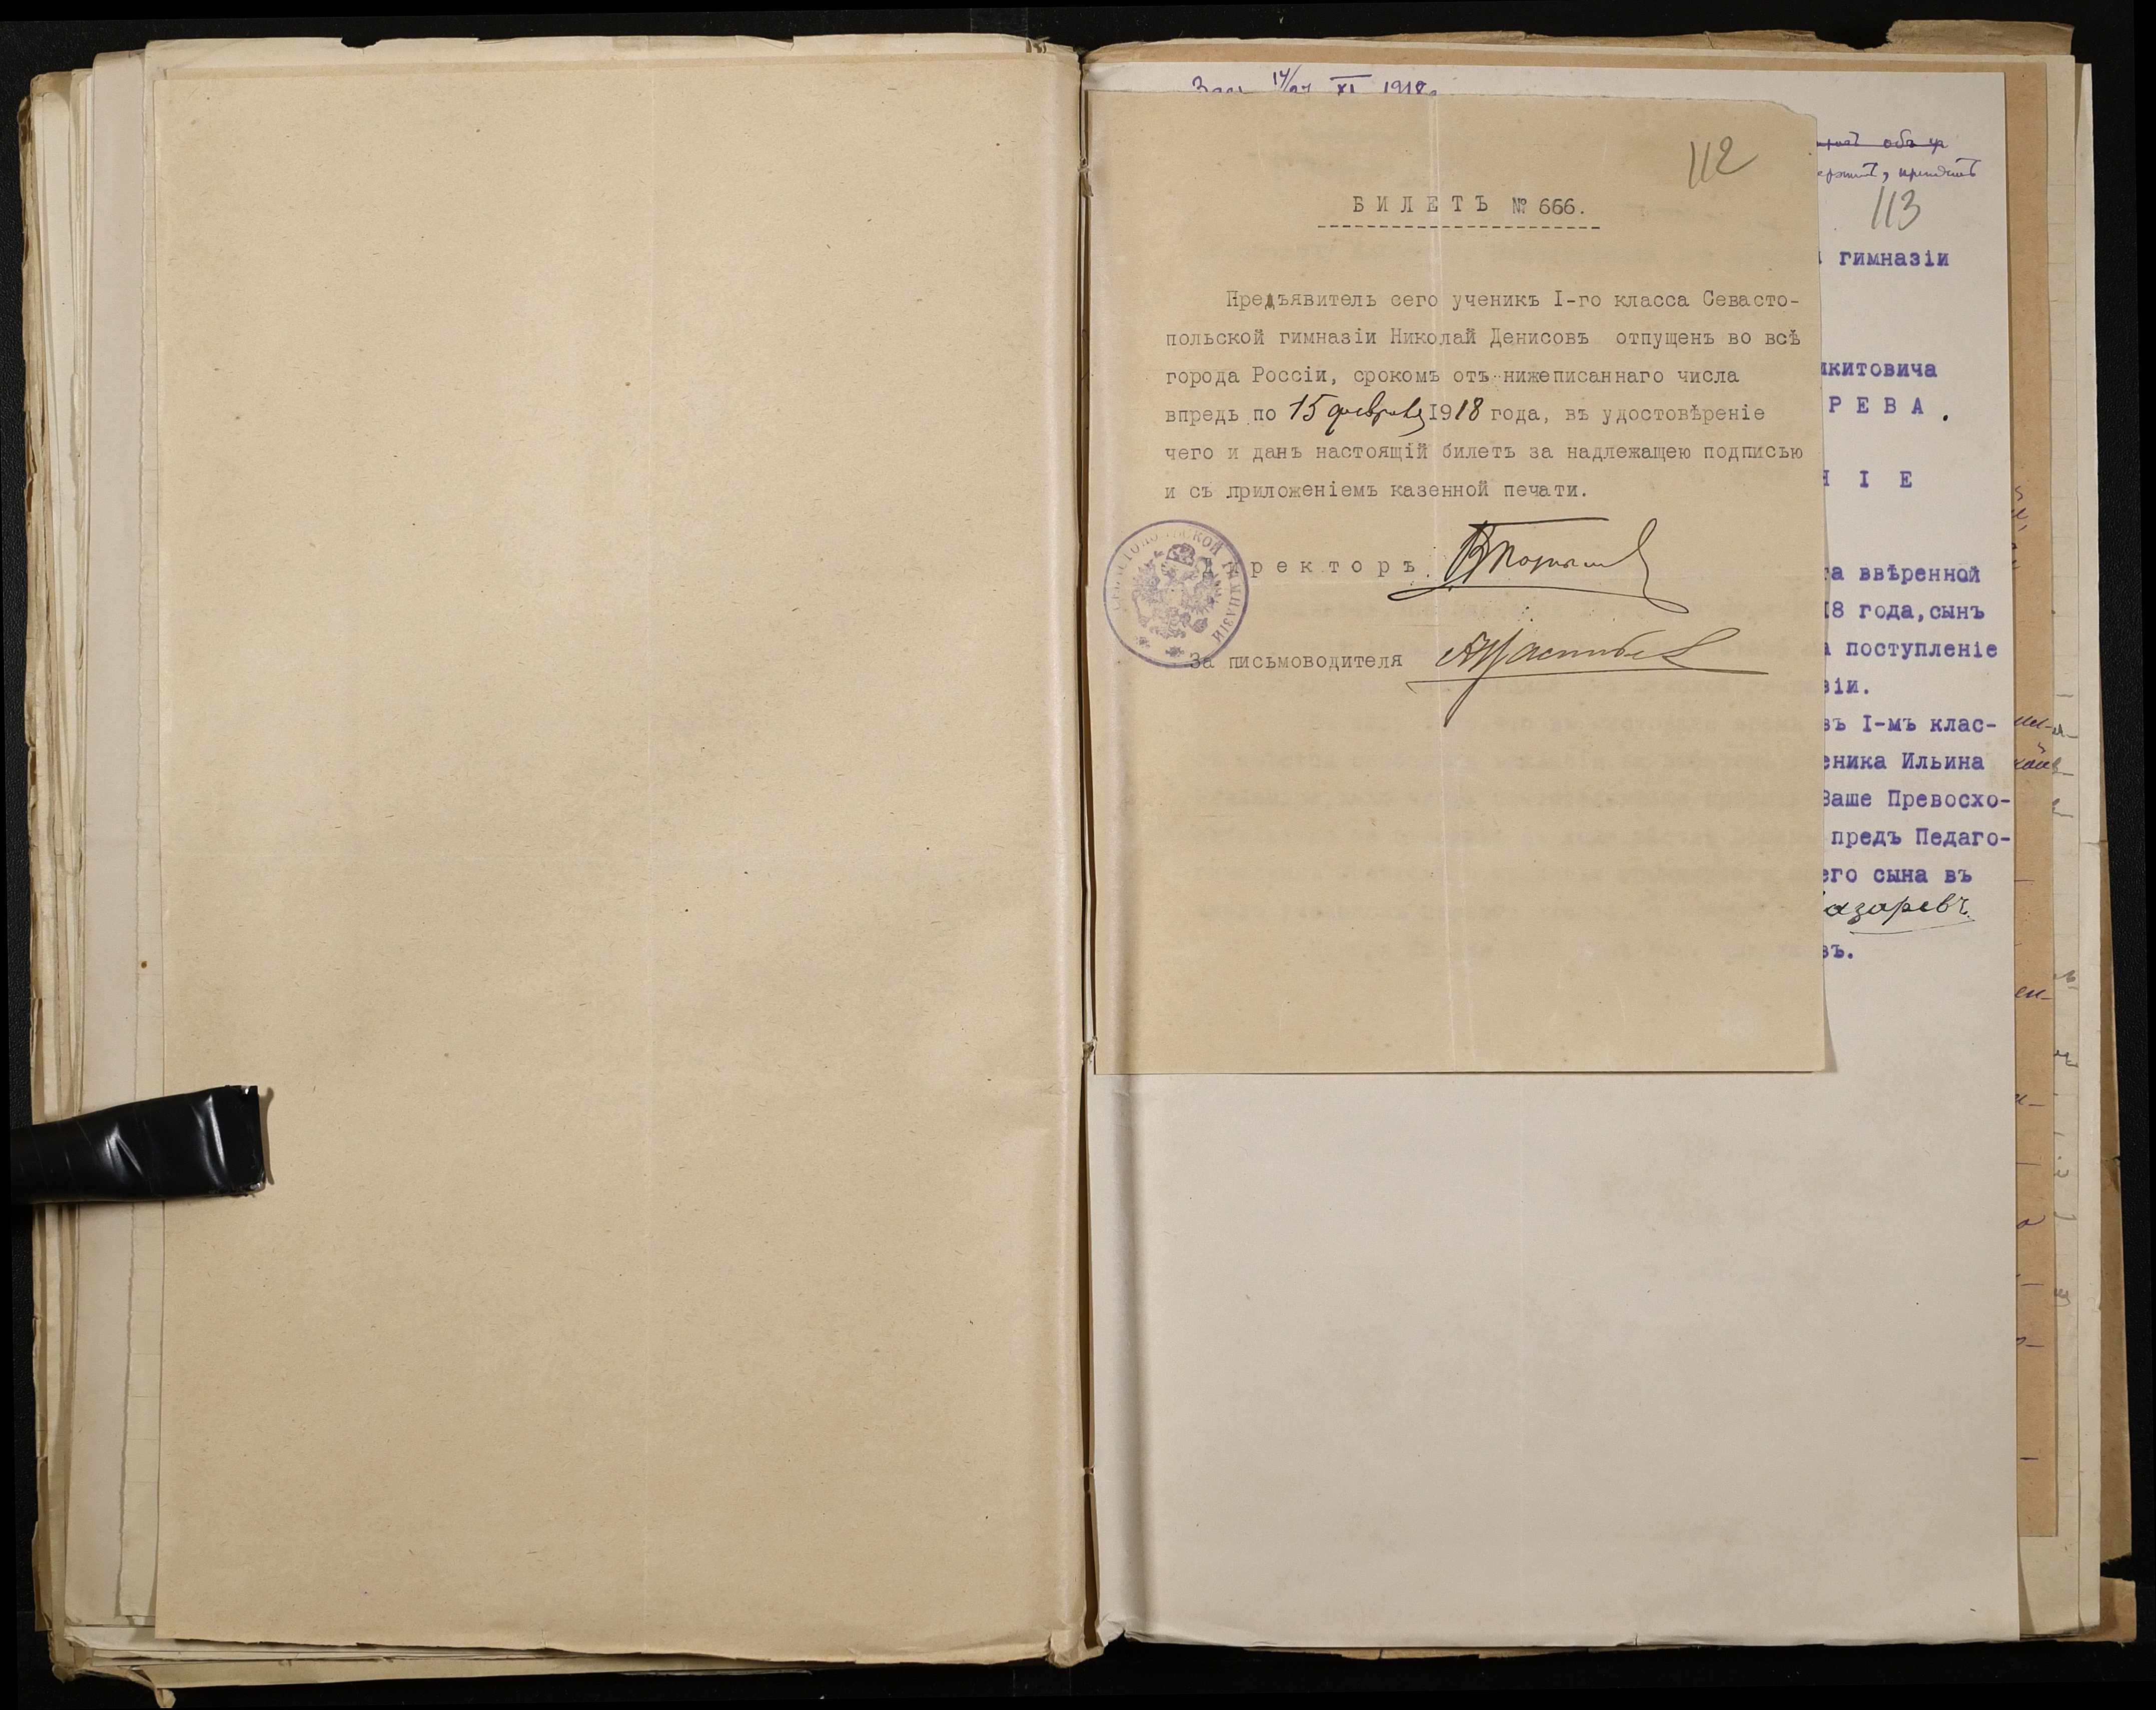 14/27 XI 1918
112
БИЛЕТЪ № 666.
Предъявитель сего ученикъ I-го класса Севасто-
польской гимназіи Николай Денисовъ отпущенъ во всѣ
города Россіи, срокомъ отъ нижеписаннаго числа
впредь по 15 февраля 1918 года, въ удостовѣреніе
чего и данъ настоящій билетъ за надлежащею подписью
и съ приложеніемъ казенной печати.
Директоръ
СЕВАСТОПОЛЬСКОЙ ГИМНАЗІИ
За письмоводителя
объ
113
гимназіи
икитовича
РЕВА.
НІЕ
та ввѣренной
18 года, сынъ
а поступленіе
зіи.
въ I-мъ клас-
еника Ильина
Ваше Превосхо-
предъ Педаго-
его сына въ
азаревъ.
въ.